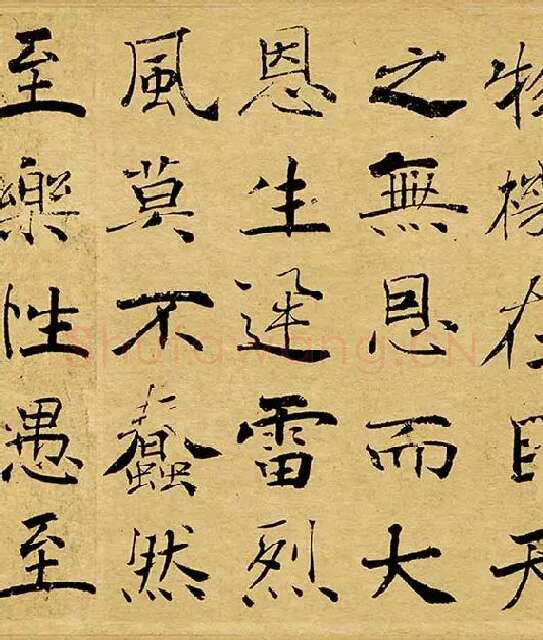 物機在目天
之無恩而大
恩生迅雷烈
風莫不蠢然
至樂性愚至
Shufawang.CN